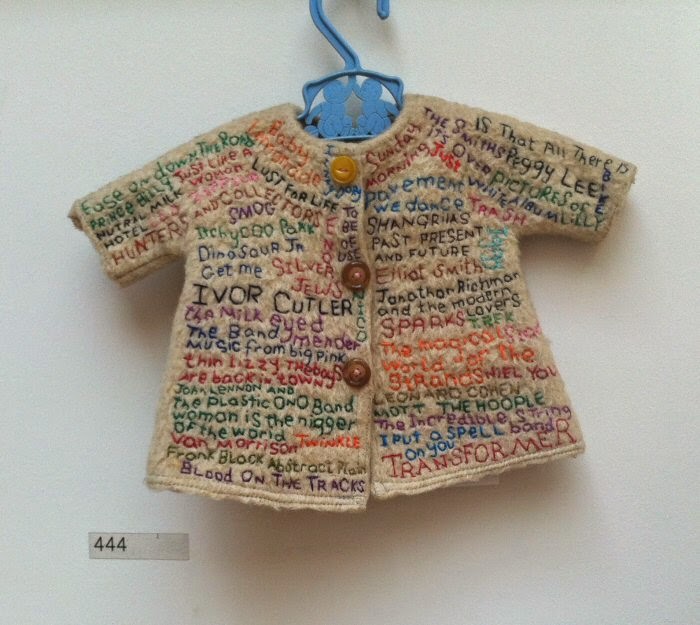 Ease on down THE ROAD
PRINCE BILLY
JUST LIKE A
woman
NEUTRAL MILK
HOTEL
HUNTERS AND COLLECTORS
LUST FOR LIFE
SMOG
Itchycoo Park
Dinosaur Jr.
Get me
SILVER
JEWS
IVOR CUTLER
the Milk eyed
mender
The Band
MUSIC from big pink
thin lizzy THE boys
are back in town
John LENNON AND
the PLASTIC ONO Band
woman is the nigger
OF the world
van morrison TWINKLE
Frank Black Abstract Plain
BLOOD ON THE TRACKS
TO
BE
OF
USE
NICO
Sunday
morning
THE SMITHS
IS That All There is
Peggy LEE
JUST
PICTURES OF
LILLY
WHITE ALBUM
Pavement
we dance
TRASH
SHANGRILAS
PAST PRESENT
AND FUTURE
Elliot Smith
Jonathan Richman
and the modern
lovers
SPARKS
The magical
world of the
STRANDS
NIEL YOU
LEONARD COHEN
MOTT THE HOOPLE
The Incredible String
band
I PUT a SPELL
on you
TRANSFORMER
444